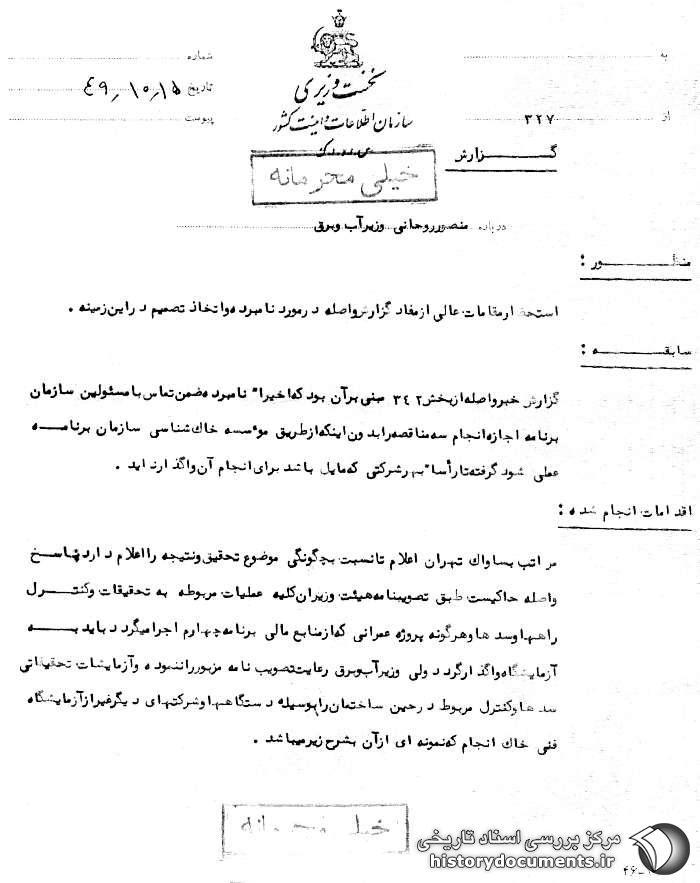 نخست وزیری
سازمان اطلاعات و امنیت کشور
س.ا.و.ا.ک
به
از ۳۲۷
شماره
تاریخ ۴۹/۱۰/۱۵
پیوست
گزارش
خیلی محرمانه
درباره منصور روحانی وزیر آب و برق
منظور :
استحضار مقامات عالی از مفاد گزارش واصله در مورد نامبرده و اتخاذ تصمیم در این زمینه .
سابقه :
گزارش خبر واصله از بخش ۳۴۲ مبنی بر آن بود که اخیرا" نامبرده ضمن تماس با مسئولین سازمان
برنامه اجازه انجام سه مناقصه را بدون اینکه از طریق موسسه خاک شناسی سازمان برنامه
عملی شود گرفته تا رأسا" بهر شرکتی که مایل باشد برای انجام آن واگذار نماید .
اقدامات انجام شده :
مراتب بساواک تهران اعلام تا نسبت بچگونگی موضوع تحقیق و نتیجه را اعلام دارد پاسخ
واصله حاکیست طبق تصویبنامه هیئت وزیران کلیه عملیات مربوطه به تحقیقات و کنترل
راهها و سدها و هرگونه پروژه عمرانی که از منابع مالی برنامه چهارم اجرا میگردد باید به
آزمایشگاه واگذار گردد ولی وزیر آب و برق رعایت تصویب نامه مزبور را ننموده و آزمایشات تحقیقاتی
سدها و کنترل مربوط در حین ساختمان را بوسیله دستگاهها و شرکتهای دیگر غیر از آزمایشگاه
فنی خاک انجام که نمونه ای از آن بشرح زیر میباشد .
خیلی محرمانه
مرکز بررسی اسناد تاریخی
historydocuments.ir